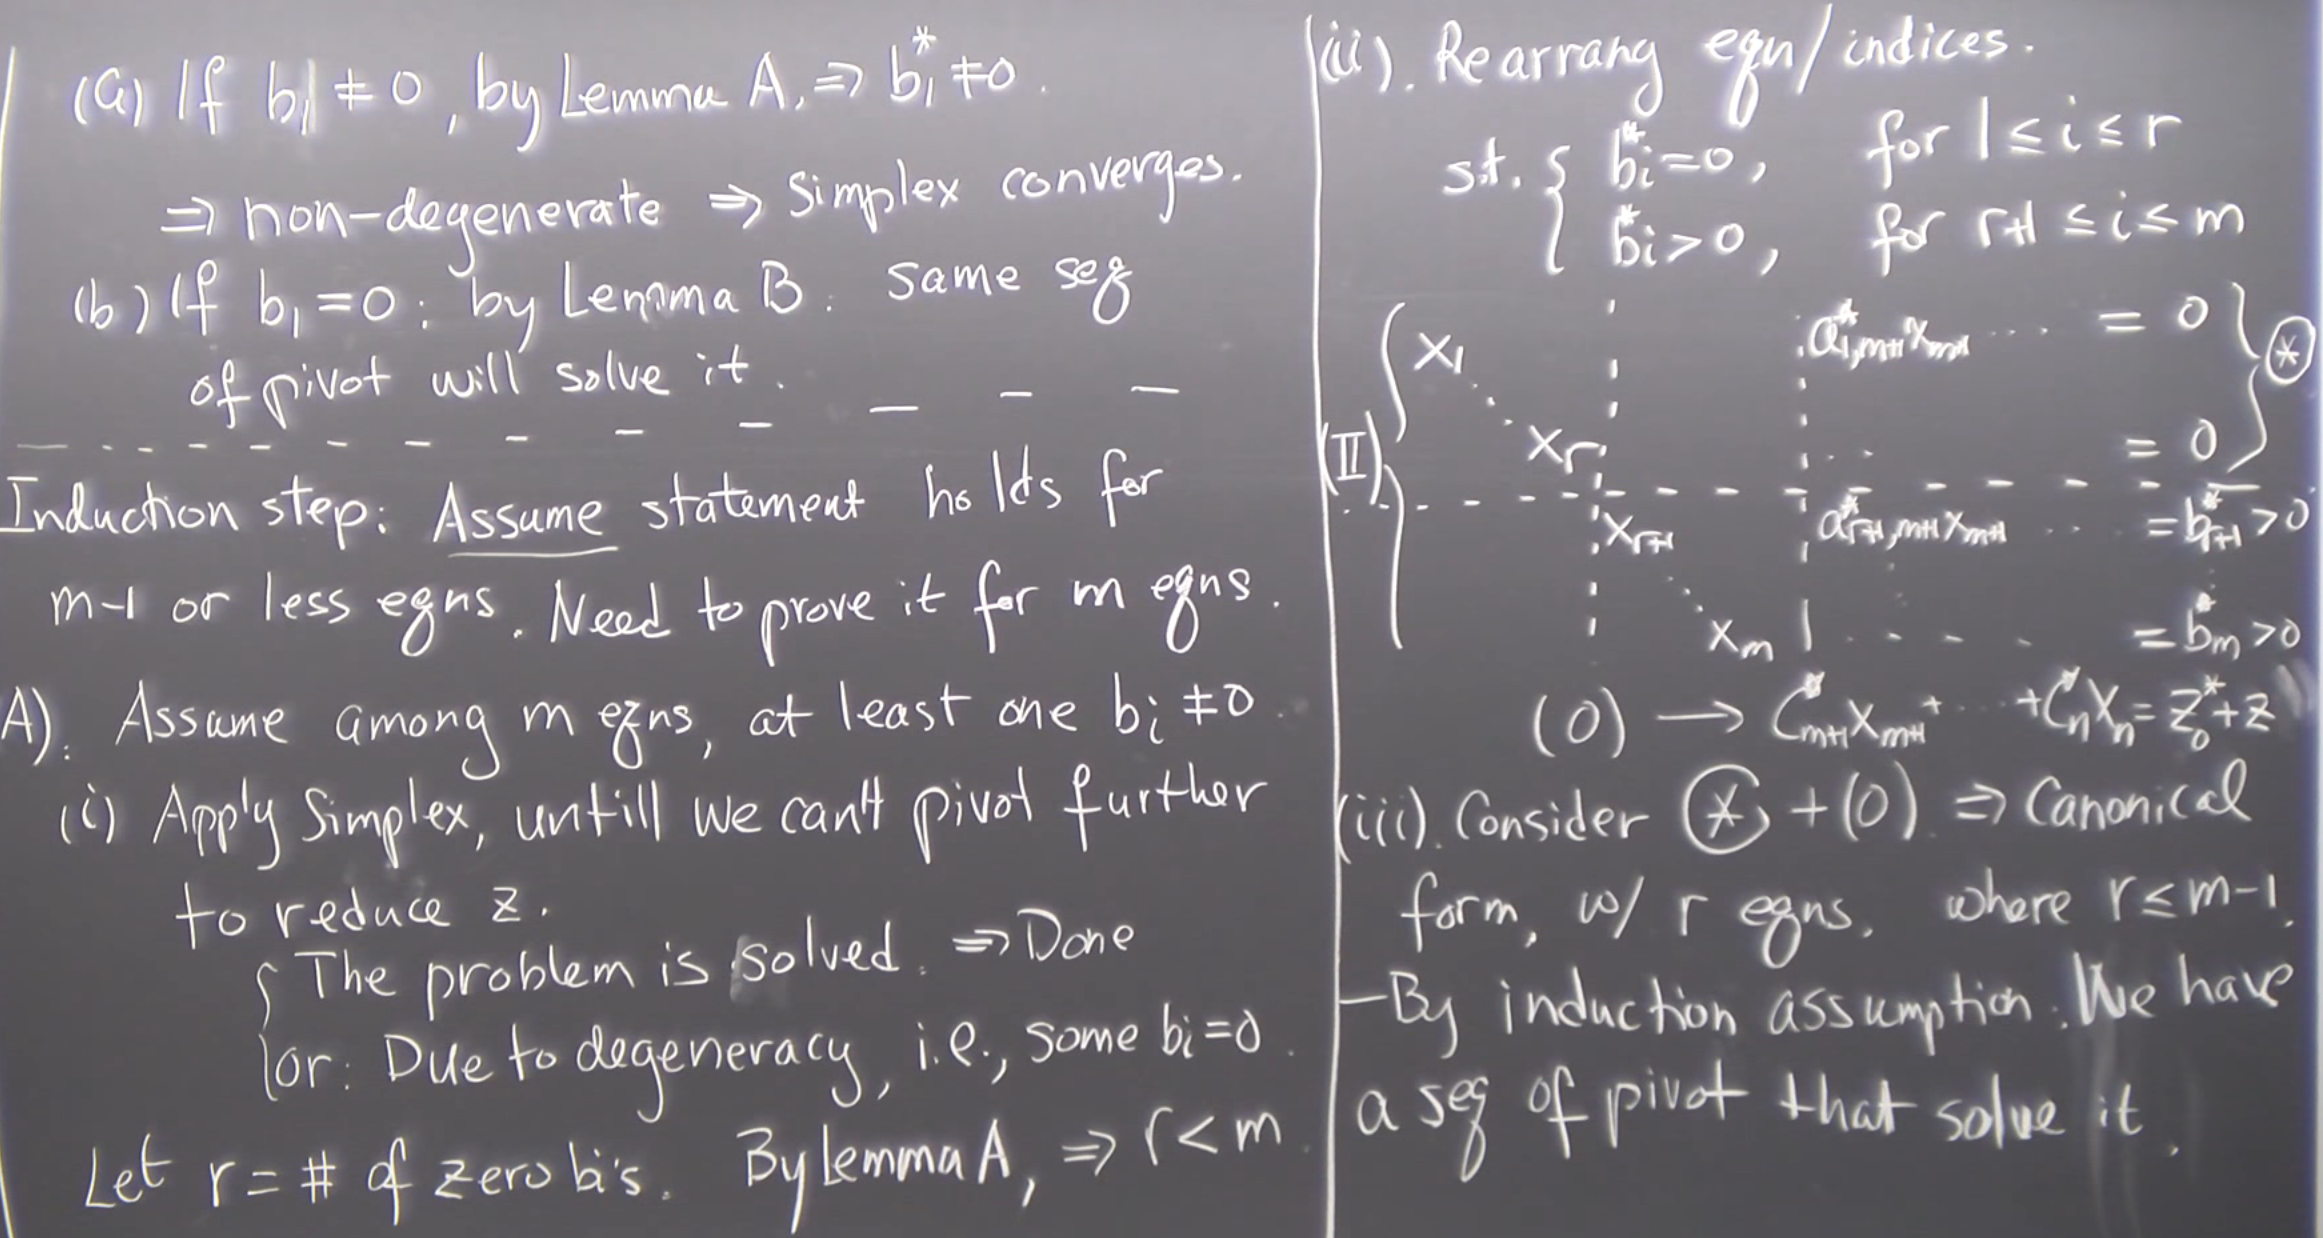 (a) If b₁ ≠ 0, by Lemma A, ⇒ b₁* ≠ 0.
⇒ non-degenerate ⇒ Simplex converges.
(b) If b₁ = 0: by Lemma B. same seq
of pivot will solve it.
Induction step: Assume statement holds for
m-1 or less eqns. Need to prove it for m eqns.
A). Assume among m eqns, at least one bᵢ ≠ 0.
(i) Apply Simplex, untill we can't pivot further
to reduce z.
{ The problem is solved. ⇒ Done
or: Due to degeneracy, i.e., some bᵢ = 0.
Let r = # of zero bᵢ's. By Lemma A, ⇒ r < m.
(ii). Rearrang eqn/indices.
s.t. { bᵢ* = 0, for 1 ≤ i ≤ r
bᵢ* > 0, for r+1 ≤ i ≤ m
x₁ ⋱ a*₁,ₘ₊₁xₘ₊₁ ... = 0
(II) xᵣ ... = 0 } ⊛
xᵣ₊₁ a*ᵣ₊₁,ₘ₊₁xₘ₊₁ ... = b*ᵣ₊₁ > 0
xₘ ... = b*ₘ > 0
(0) → C*ₘ₊₁xₘ₊₁ + ... + C*ₙxₙ = z₀* + z
(iii). Consider ⊛ + (0). ⇒ Canonical
form, w/ r eqns, where r ≤ m-1.
- By induction assumption. We have
a seq of pivot that solve it.